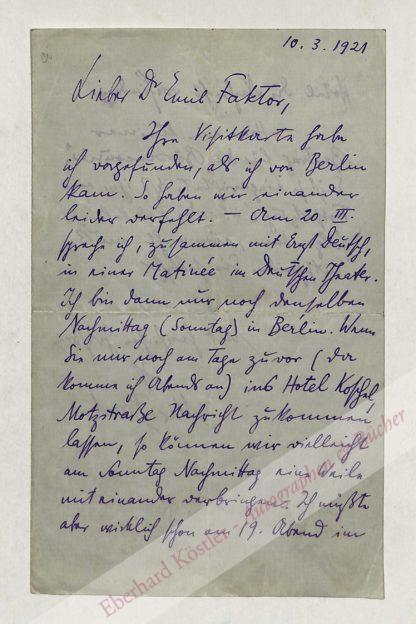 10. 3. 1921
Lieber Dr Emil Faktor,
Ihre Visitkarte habe
ich vorgefunden, als ich von Berlin
kam. So haben wir einander
leider verfehlt. – Am 20. III.
spreche ich, zusammen mit Ernst Deutsch,
in einer Matinée im Deutschen Theater.
Ich bin dann nur noch denselben
Nachmittag (Sonntag) in Berlin. Wenn
Sie mir noch am Tage zuvor (da
komme ich Abends an) ins Hotel Koschel,
Motzstraße Nachricht zukommen
lassen, so können wir vielleicht
am Sonntag Nachmittag eine Weile
miteinander verbringen. Ich müßte
aber wirklich schon am 19. Abend im
Eberhard Köstler - Autographen & Bücher